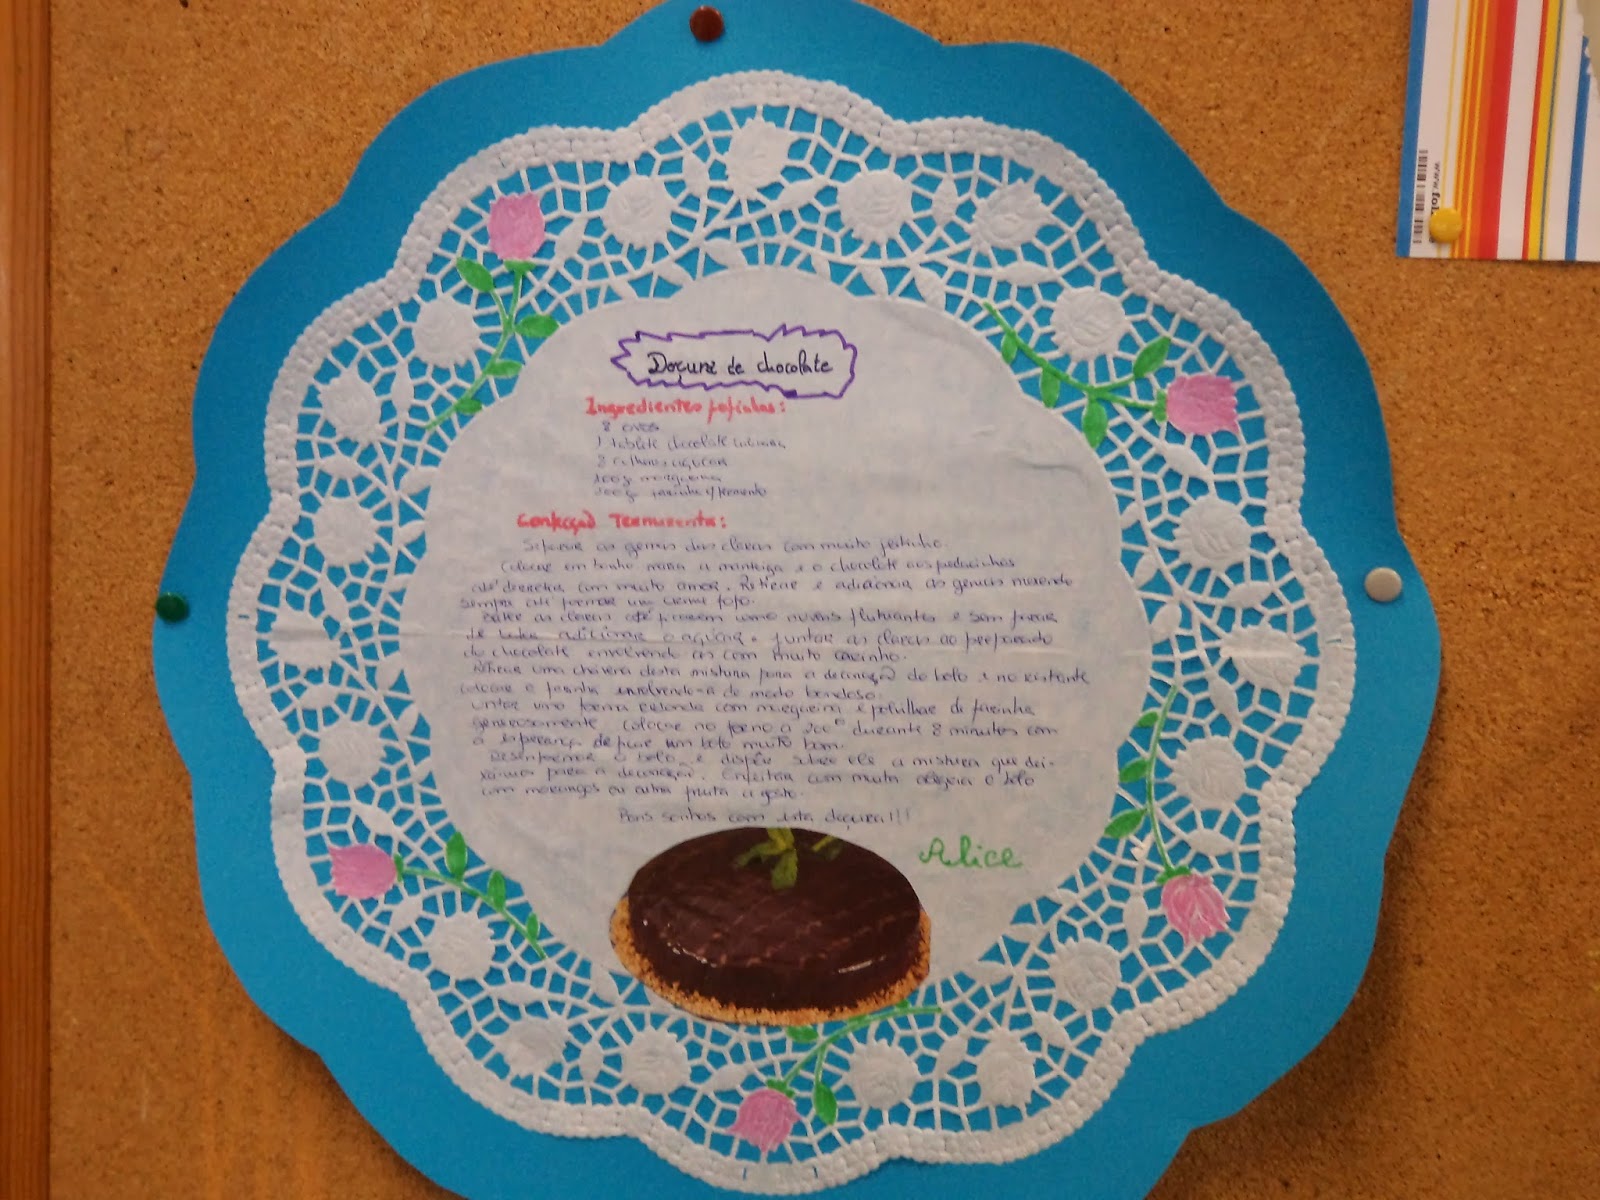 Doçura de chocolate
Ingredientes fofinhos:
8 ovos
1 tablete chocolate culinária
8 colheres açúcar
100g margarina
200g farinha c/ fermento
Confecção Ternurenta:
Separar as gemas das claras com muito jeitinho.
Colocar em banho maria a manteiga e o chocolate aos pedacinhos
até derreter com muito amor. Retirar e adicionar as gemas mexendo
sempre até formar um creme fofo.
Bater as claras até parecem umas nuvens flutuantes e sem parar
de bater adicionar o açúcar. Juntar as claras ao preparado
de chocolate envolvendo as com muito carinho.
Retirar uma chávena desta mistura para a decoração do bolo e no restante
colocar a farinha envolvendo-a de modo bondoso.
Untar uma forma redonda com margarina e polvilhar de farinha
generosamente. Colocar no forno a 200º durante 8 minutos com
a esperança de ficar um bolo muito bom.
Desenformar o bolo e dispôr sobre ele a mistura que dei-
xámos para a decoração. Enfeitar com muita alegria o bolo
com morangos ou outra fruta a gosto.
Bons sonhos com esta doçura!!!
Alice